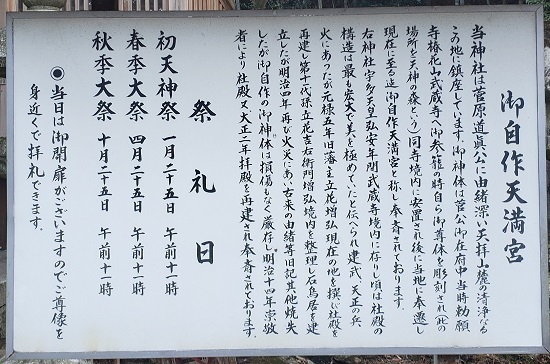 御自作天満宮
当神社は菅原道真公に由緒深い天拝山麓の清浄なる
この地に鎮座しています。御神体は菅公御在府中当時勅願
寺椿花山武蔵寺へ御参籠の時自ら御尊体を彫刻され(此の
場所を天神の森という)同寺境内に安置され後に当地に奉遷し
現在に至る迄御自作天満宮と称し奉斎されております。
右神社宇多天皇弘安年間武蔵寺境内に存りし頃は社殿の
構造は最も宏大で美を極めていたと伝へられ建武、天正の兵
火にあったが元禄五年旧藩主立花増弘現在の地を撰び社殿を
再建し第十代孫立花吉右衛門増弘境内を整理し石鳥居を建
立したが明治四年再び火災にあい古来の由緒等旧記其他焼失
したが御自作の御神体は損傷もなく厳存し明治十四年崇敬
者により社殿又大正二年拝殿を再建され奉斎されております。
祭礼日
初天神祭 一月二十五日 午前十一時
春季大祭 四月二十五日 午前十一時
秋季大祭 十月二十五日 午前十一時
◉当日は御開扉がございますのでご尊像を
身近くで拝礼できます。